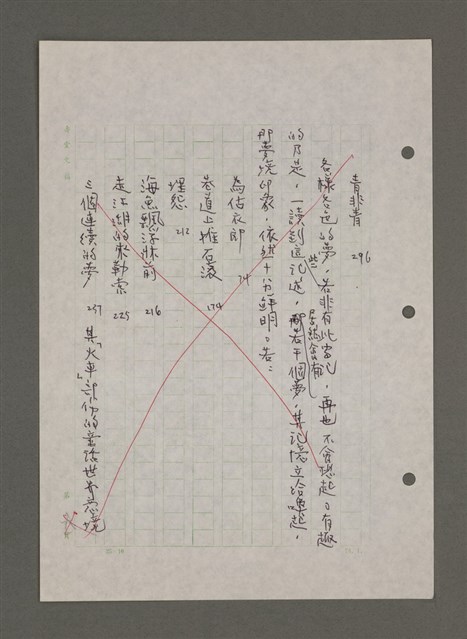 青非青 296
各樣各色的夢，若非有此當記，再也不會想起。有趣
的乃是，一讀到這些記述，若干個夢，其記憶立給連起，
那夢境印象，依然十分鮮明。若：
為估衣郎 74
巷道上推石滾 174
埋怨 212
海魚飄浮牀前 216
走江湖的米勒索 225
三個連續的夢 237 其「火車」部份的童話世界意境